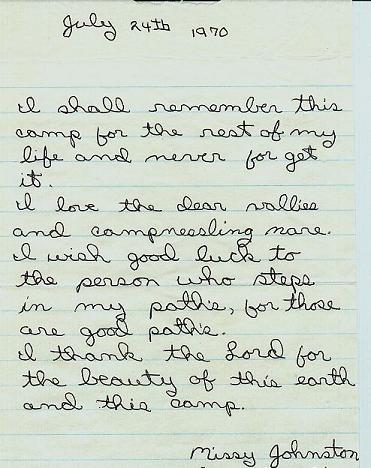 July 24th 1970
I shall remember this
camp for the rest of my
life and never for get
it.
I love the dear vallies
and campnessling mare.
I wish good luck to
the person who steps
in my paths, for those
are good paths.
I thank the Lord for
the beauty of this earth
and this camp.
Missy Johnston